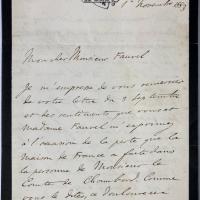 1er Novembre 1883
Mon cher Monsieur Fauvel
Je m'empresse de vous remercier
de votre lettre du 3 Septembre
et des sentiments que vous et
Madame Fauvel m'exprimez
à l'occasion de la perte que la
Maison de France a faite dans
la personne de Monsieur le
Comte de Chambord. Comme
vous le dites, ce douloureux